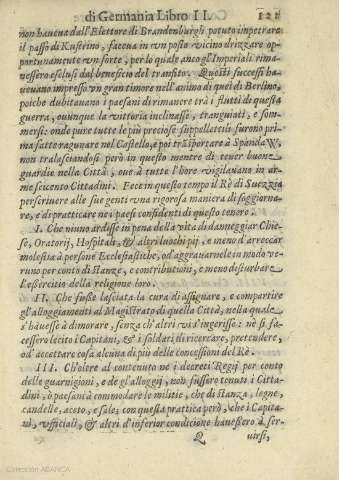 di Germania Libro II. 121
non haueua dall'Elettore di Brandenburgh potuto impetrare
il passo di Kustrino, faceua in vn posto vicino drizzare op-
portunamente vn forte, per lo quale anco gl'Imperiali rima-
nessero esclusi dal beneficio del transito. Questi successi ha-
ueuano impresso vn gran timore nell'animo di quei di Berlino,
poiche dubitauano i paesani di rimanere trà i flutti di questa
guerra, ouunque la vittoria inclinasse, tranguiati, e som-
mersi: onde pure tutte le più preciose suppellettili furono pri-
ma fatte ragunare nel Castello, e poi trasportare à Spandaw,
non tralasciandosi però in questo mentre di tener buone
guardie nella Città, oue à tutte l'hore vigilauano in ar-
me seicento Cittadini. Fece in questo tempo il Rè di Suezzia
perscriuere alle sue genti vna rigorosa maniera di soggiorna-
re, e di pratticare ne i paesi confidenti di questo tenore.
I. Che niuno ardisse in pena della vita di danneggiar Chie-
se, Oratorij, Hospitali, & altri luochi pij, e meno d'arreccar
molestia à persone Ecclesiastiche, od aggrauarnele in modo ve-
runo per conto di stanze, e contributioni, e meno disturbare
l'essercitio della religione loro.
II. Che fusse lasciata la cura di assignare, e compartire
gl'alloggiamenti al Magistrato di quella Città, nella quale
s'hauesse à dimorare, senza ch'altri vi s'ingerisse: nè si fa-
cesse lecito i Capitani, & i soldati di ricercare, pretendere,
od'accettare cosa alcuna di più delle concessioni del Rè.
III. Ch'oltre al contenuto ne i decreti Regij per conto
delle guarnigioni, e de gl'alloggi, non fussero tenuti i Citta-
dini, ò paesani à commodare le militie, che di stanza, legne,
candelle, aceto, e sale; con questa prattica però, che i Capita-
ni, vfficiali, & altri d'inferior condicione hauessero à ser-
Q uirsi,
Colección ABANCA